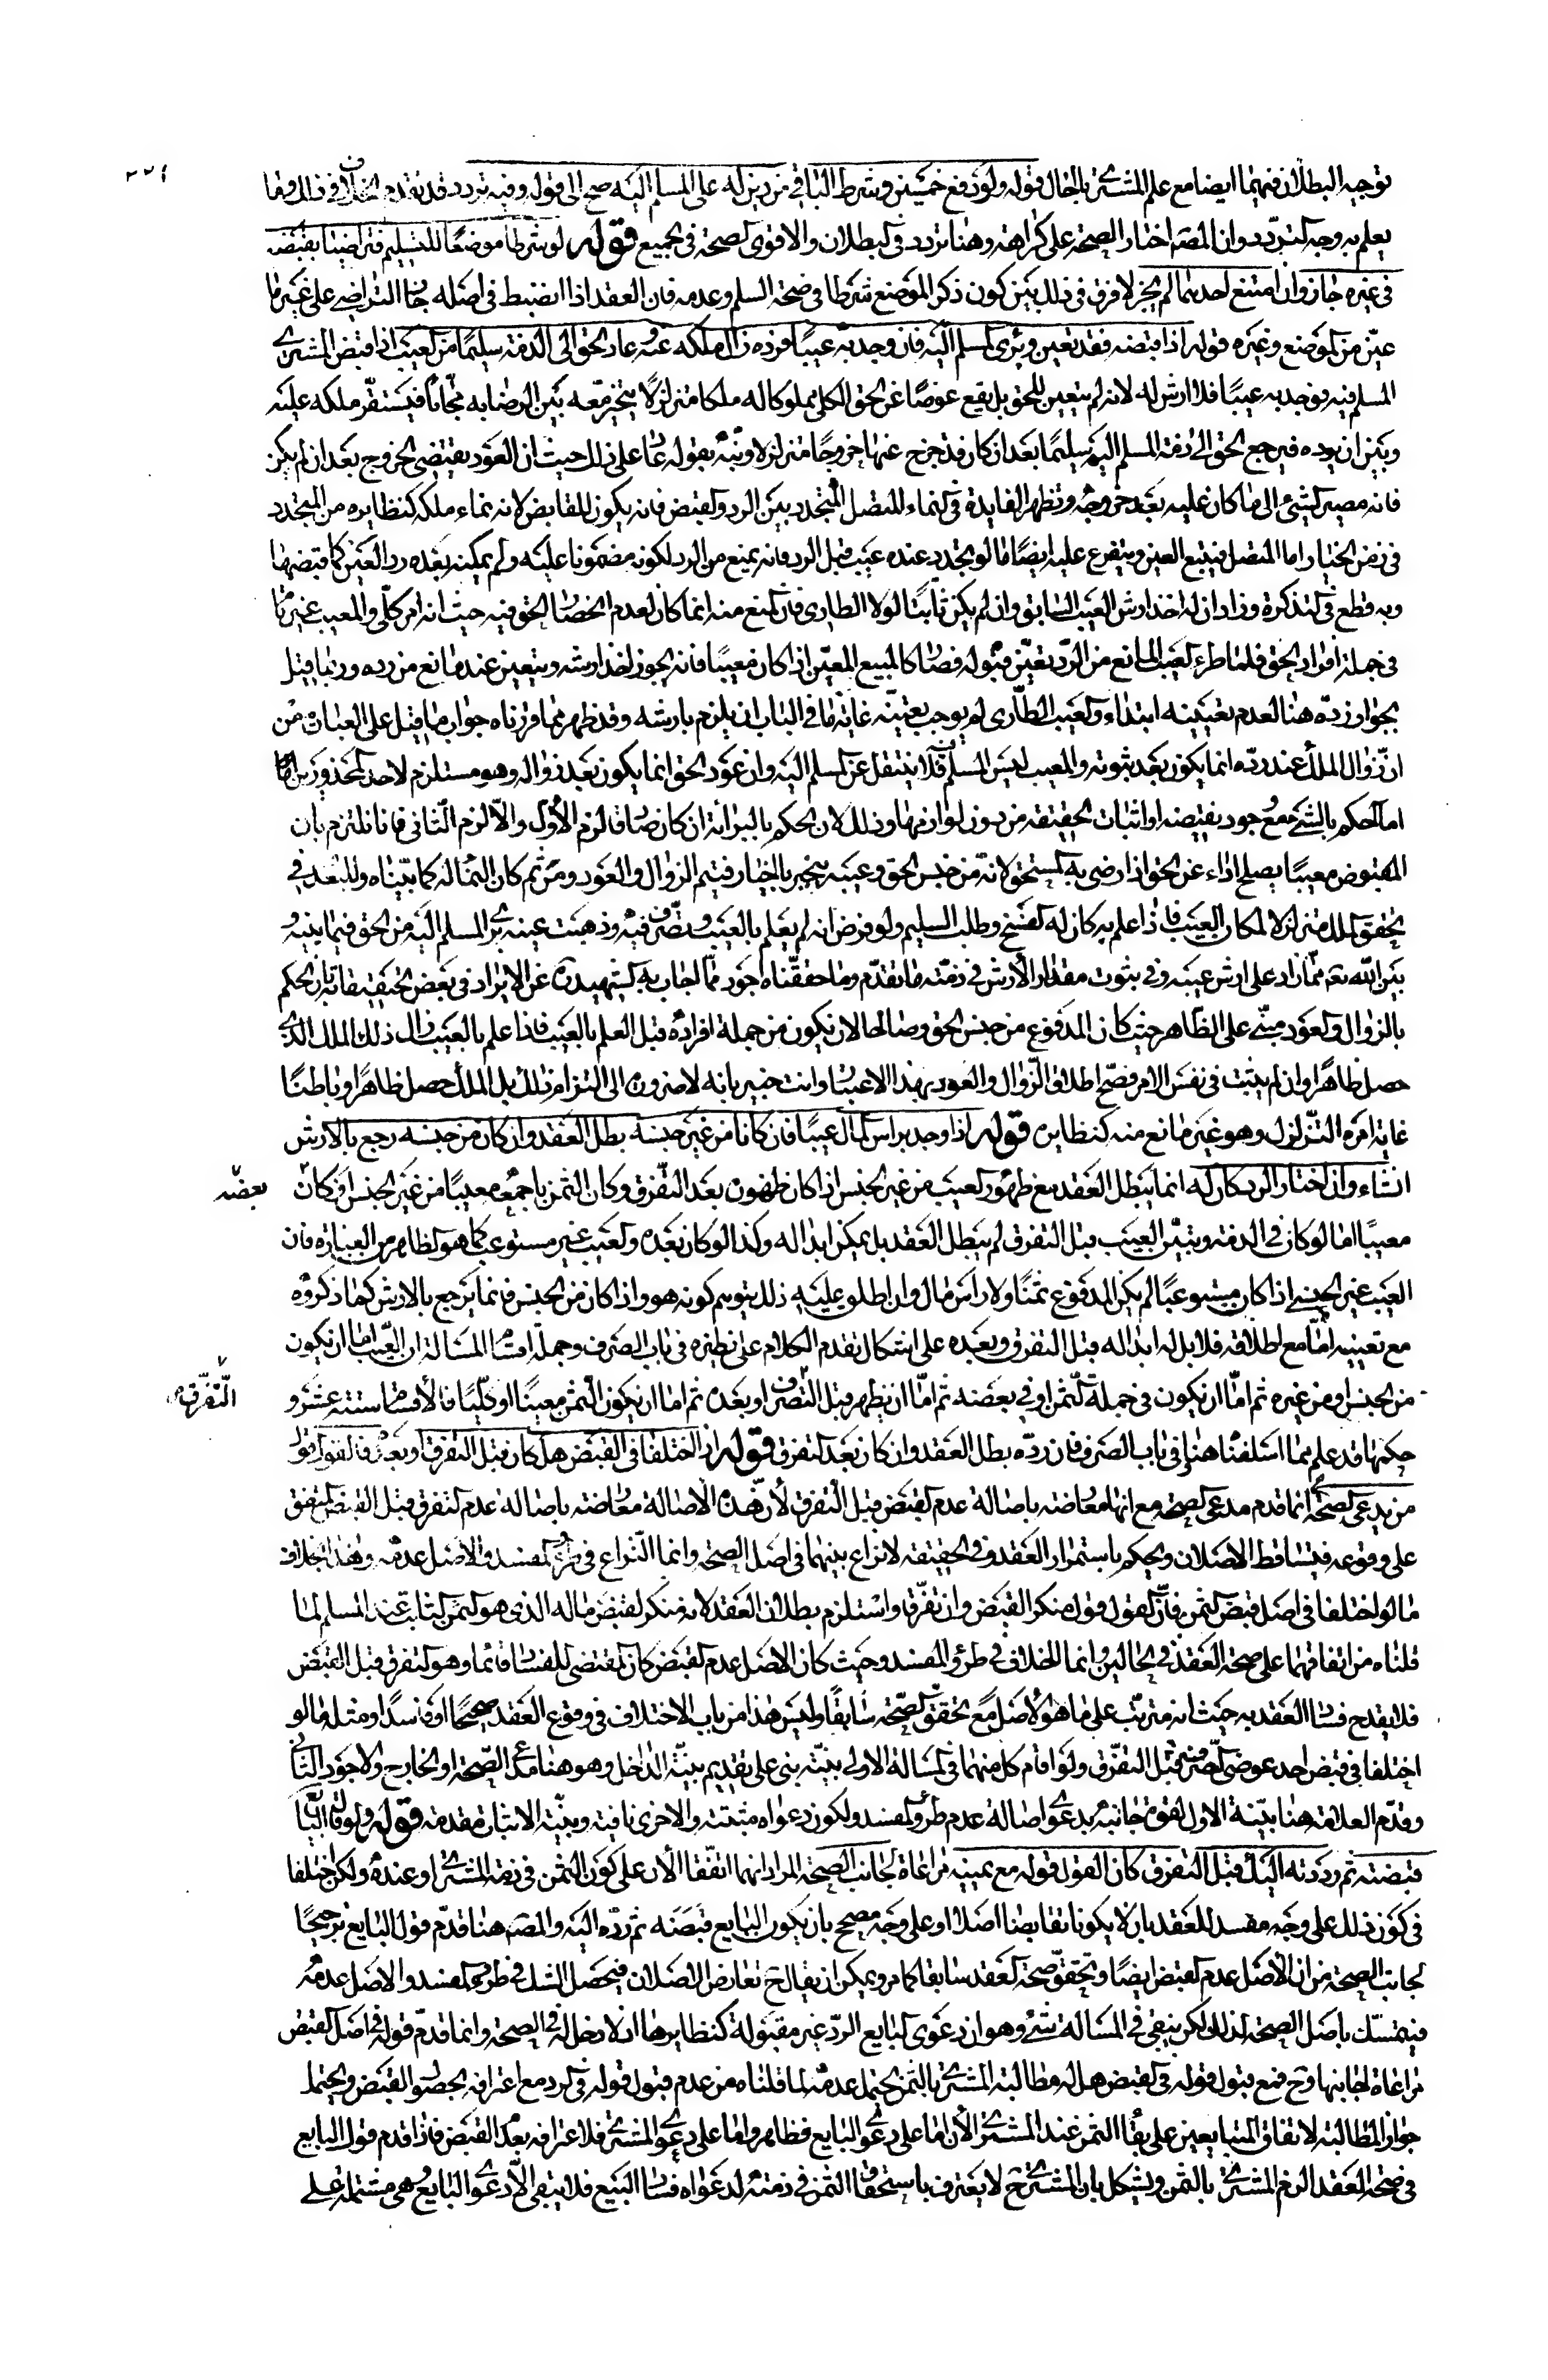 توجيه البطلان فيهما ايضا مع علم المشترى بالحال قوله ولو دفع خمسين وشرط الباقى من دين له على المسلم اليه صح الى قوله وفيه تردد قد تقدم الخلاف فى ذلك وما
يعلم به وجه التردد وان المصنف اختار الصحة على كراهة وهنا تردد فى البطلان والاقوى الصحة فى الجميع قوله لو شرطا موضعا للتسليم فتراضيا بقبضه
فى غيره جاز وان امتنع احدهما لم يجبر لا فرق فى ذلك بين كون ذكر الموضع شرطا فى صحة السلم وعدمه فان العقد اذا انضبط فى اصله جاز التراضى على غير ما
عيّن من الموضع وغيره قوله اذا قبضه فقد تعين وبرئ المسلم اليه فان وجد به عيبا فرده زال ملكه عنه وعاد الحق الى الذمة سليما من العيب اذا قبض المشترى
المسلم فيه فوجد به عيبا فلا ارش له لانه لم يتعين للحق بل يقع عوضا عن الحق الكلى مملوكا له ملكا متزلزلا يتخير معه بين الرضا به مجانا فيستقر ملكه عليه
وبين ان يرده فيرجع الحق الى ذمة المسلم اليه سليما بعد ان كان قد خرج عنها خروجا متزلزلا ونبّه بقوله عاد على ذلك حيث ان العود يقتضى الخروج بعد ان لم يكن
فانه مصير الشئ الى ما كان عليه بعد خروجه وتظهر الفايدة فى النماء المنفصل المتجدد بين الرد والقبض فانه يكون للقابض لانه نماء ملكه كنظايره من المتجدد
فى زمن الخيار اما المتصل فيتبع العين ويتفرع عليه ايضا ما لو تجدد عنده عيب قبل الرد فانه يمنع من الرد لكونه مضمونا عليه ولم يمكنه بعده رد العين كما قبضها
وبه قطع فى التذكرة وزاد ان له اخذ ارش العيب السابق وان لم يكن ثابتا لولا الطارى فان المنع منه انما كان لعدم انحصار الحق فيه حيث انه امر كلى والمعيب غير
فى جملة افراد الحق فلما طرء العيب المانع من الردّ تعيّن قبوله فصار كالمبيع المعيّن اذا كان معيبا فانه يجوز اخذ ارشه ويتعين عند مانع من رده وربما قيل
بجواز ردّه هنا لعدم تعيينه ابتداء والعيب الطارى لم يوجب تعيّنه غاية ما فى الباب ان يلزم بارشه وقد ظهر بما قررناه جواب ما قيل على العبارة من
ان زوال الملك عند ردّه انما يكون بعد ثبوته والمعيب ليس المسلم فيه فلا ينتقل عن المسلم اليه وان عود الحق انما يكون بعد زواله وهو مستلزم لاحد المحذورين
اما الحكم بالشئ مع وجود نقيضه او اثبات الحقيقة من بدون لوازمها وذلك لان الحكم بالبراءة ان كان صادقا لزم الاول والاّ لزم الثانى فانا نلتزم بان
المقبوض معيبا يصلح اداء عن الحق اذا رضى به المستحق لانه من جنس الحق وعيبه ينجبر بالخيار فيتم الزوال والعود ومن ثم كان النماء له كما بيناه وللبعد فى
تحقق الملك متزلزلا لمكان العيب فاذا علم به كان له الفسخ وطلب السليم ولو فرض انه لم يعلم بالعيب وتصرف فيه وذهبت عينه برئ المسلم اليه من الحق فيما بينه و
بين الله تعـ مما زاد على ارش عيبه وفى ثبوت مقدار الارش فى ذمته ما تقدم وما حققناه اجود مما اجاب به الشهيد ره عن الايراد فى بعض تحقيقاته بان الحكم
بالزوال والعود مبنى على الظاهر حيث كان المدفوع من جنس الحق وصالحا لان يكون من جملة افراده قبل العلم بالعيب فاذا علم بالعيب زال ذلك الملك الذى
حصل ظاهرا وان لم يثبت فى نفس الامر فصح اطلاق الزوال والعود بهذا الاعتبار وانت خبير بانه لا ضرورة الى التزام ذلك بل الملك حصل ظاهرا وباطنا
غايته امره التزلزل وهو غير مانع منه كنظايره قوله اذا وجد براس المال عيبا فان كان من غير جنسه بطل العقد وان كان من جنسه رجع بالارش
ان شاء وان اختار الرد كان له انما يبطل العقد مع ظهور العيب من غير الجنس اذا كان ظهوره بعد التفرق وكان الثمن باجمعه معيبا من غير الجنس فلو كان بعضه
معيبا اما لو كان فى الذمة وتبيّن العيب قبل التفرق لم يبطل العقد بل يمكن ابداله وكذا لو كان بعده والعيب غير مستوعب كما هو الظاهر من العبارة فان
العيب غير الجنسى اذا كان مستوعبا لم يكن المدفوع ثمنا ولا راس مال وان اطلق عليه ذلك بتوهم كونه هو واذا كان من الجنس فانما يرجع بالارش كما ذكروه
مع تعيينه اما مع اطلاقه فلا بل له ابداله قبل التفرق وبعده على اشكال تقدم الكلام على نظيره فى باب الصرف وجملة اقسام المسالة ان العيب اما ان يكون
من الجنس او من غيره ثم اما ان يكون فى جملة الثمن او فى بعضه ثم اما ان يظهر قبل التصرف او بعده ثم اما ان يكون الثمن معينا او كليا فالاقسام ستة عشر و التفرق
حكمها قد علم بما اسلفناه هنا فى باب الصرف فان ردّه بطل العقد وان كان بعد التفرق قوله اذا اختلفا فى القبض هل كان قبل التفرق او بعده فالقول قول
من يدعى الصحة انما قدم مدعى الصحة مع انها معارضة باصالة عدم القبض قبل التفرق لان هذه الاصالة معارضة باصالة عدم التفرق قبل القبض المتفق
على وقوعه فيتساقط الاصلان ويحكم باستمرار العقد وفى الحقيقة لا نزاع بينهما فى اصل الصحة وانما النزاع فى طرو المفسد والاصل عدمه وهذا بخلاف
ما لو اختلفا فى اصل قبض الثمن فان القول قول منكر القبض وان تفرقا واستلزم بطلان العقد لانه منكر لقبض ماله الذى هو الثمن الثابت عند المسلم لما
قلناه من اتفاقهما على صحة العقد فى الحالين وانما الخلاف فى طرؤ المفسد وحيث كان الاصل عدم القبض كان المقتضى للفساد قائما وهو التفرق قبل القبض
فلا يقدح فساد العقد به حيث انه مترتب على ما هو الاصل مع تحقق الصحة سابقا وليس هذا من باب الاختلاف فى وقوع العقد صحيحا او فاسدا ومثله ما لو
اختلفا فى قبض احد عوضى الصرف قبل التفرق ولو اقام كل منهما فى المسالة الاولى بينة بنى على تقديم بينة الداخل وهو هنا مدعى الصحة او الخارج والاجود الثانى
وقدم العلامة هنا بيّنة الاول لقوة جانبه بدعوى اصالة عدم طرو المفسد ولكون دعواه مثبتة والاخرى نافية وبينة الاثبات مقدمة قوله ولو قال البايع
قبضته ثم رددته اليك قبل التفرق كان القول قوله مع يمينه مراعاة لجانب الصحة المراد انهما اتفقا الان على كون الثمن فى ذمة المشترى او عنده ولكن اختلفا
فى كون ذلك على وجه مفسد للعقد بان لا يكونا تقابضا اصلا او على وجه مصحح بان يكون البايع قبضه ثم ردّه اليه والمصنف هنا قدّم قول البايع ترجيحا
لجانب الصحة من ان الاصل عدم القبض ايضا وتحقق صحة العقد سابقا كما مر ويمكن ان يقال ح تعارض الاصلان فيحصل الشك فى طرو المفسد والاصل عدمه
فيتمسك باصل الصحة لذلك لكن يبقى فى المسالة شئ وهو ان دعوى البايع الرد غير مقبولة كنظايرها اذ لا دخل له فى الصحة وانما قدّم قوله فى اصل القبض
مراعاة لجانبها وح فمع قبول قوله فى القبض هل له مطالبة المشترى بالثمن يحتمل عدمه لما قلناه من عدم قبول قوله فى الرد مع اعترافه بحصول القبض ويحتمل
جواز المطالبة لاتفاق المتبايعين على بقاء الثمن عند المشترى الان اما على دعوى البايع فظاهر واما على دعوى المشترى فلاعترافه بعدم القبض فاذا قدم قول البايع
فى صحة العقد الزم المشترى بالثمن ويشكل بان المشترى ح لا يعترف باستحقاق الثمن فى ذمته لدعواه فساد البيع فلا يبقى الاّ دعوى البايع وهى مشتملة على